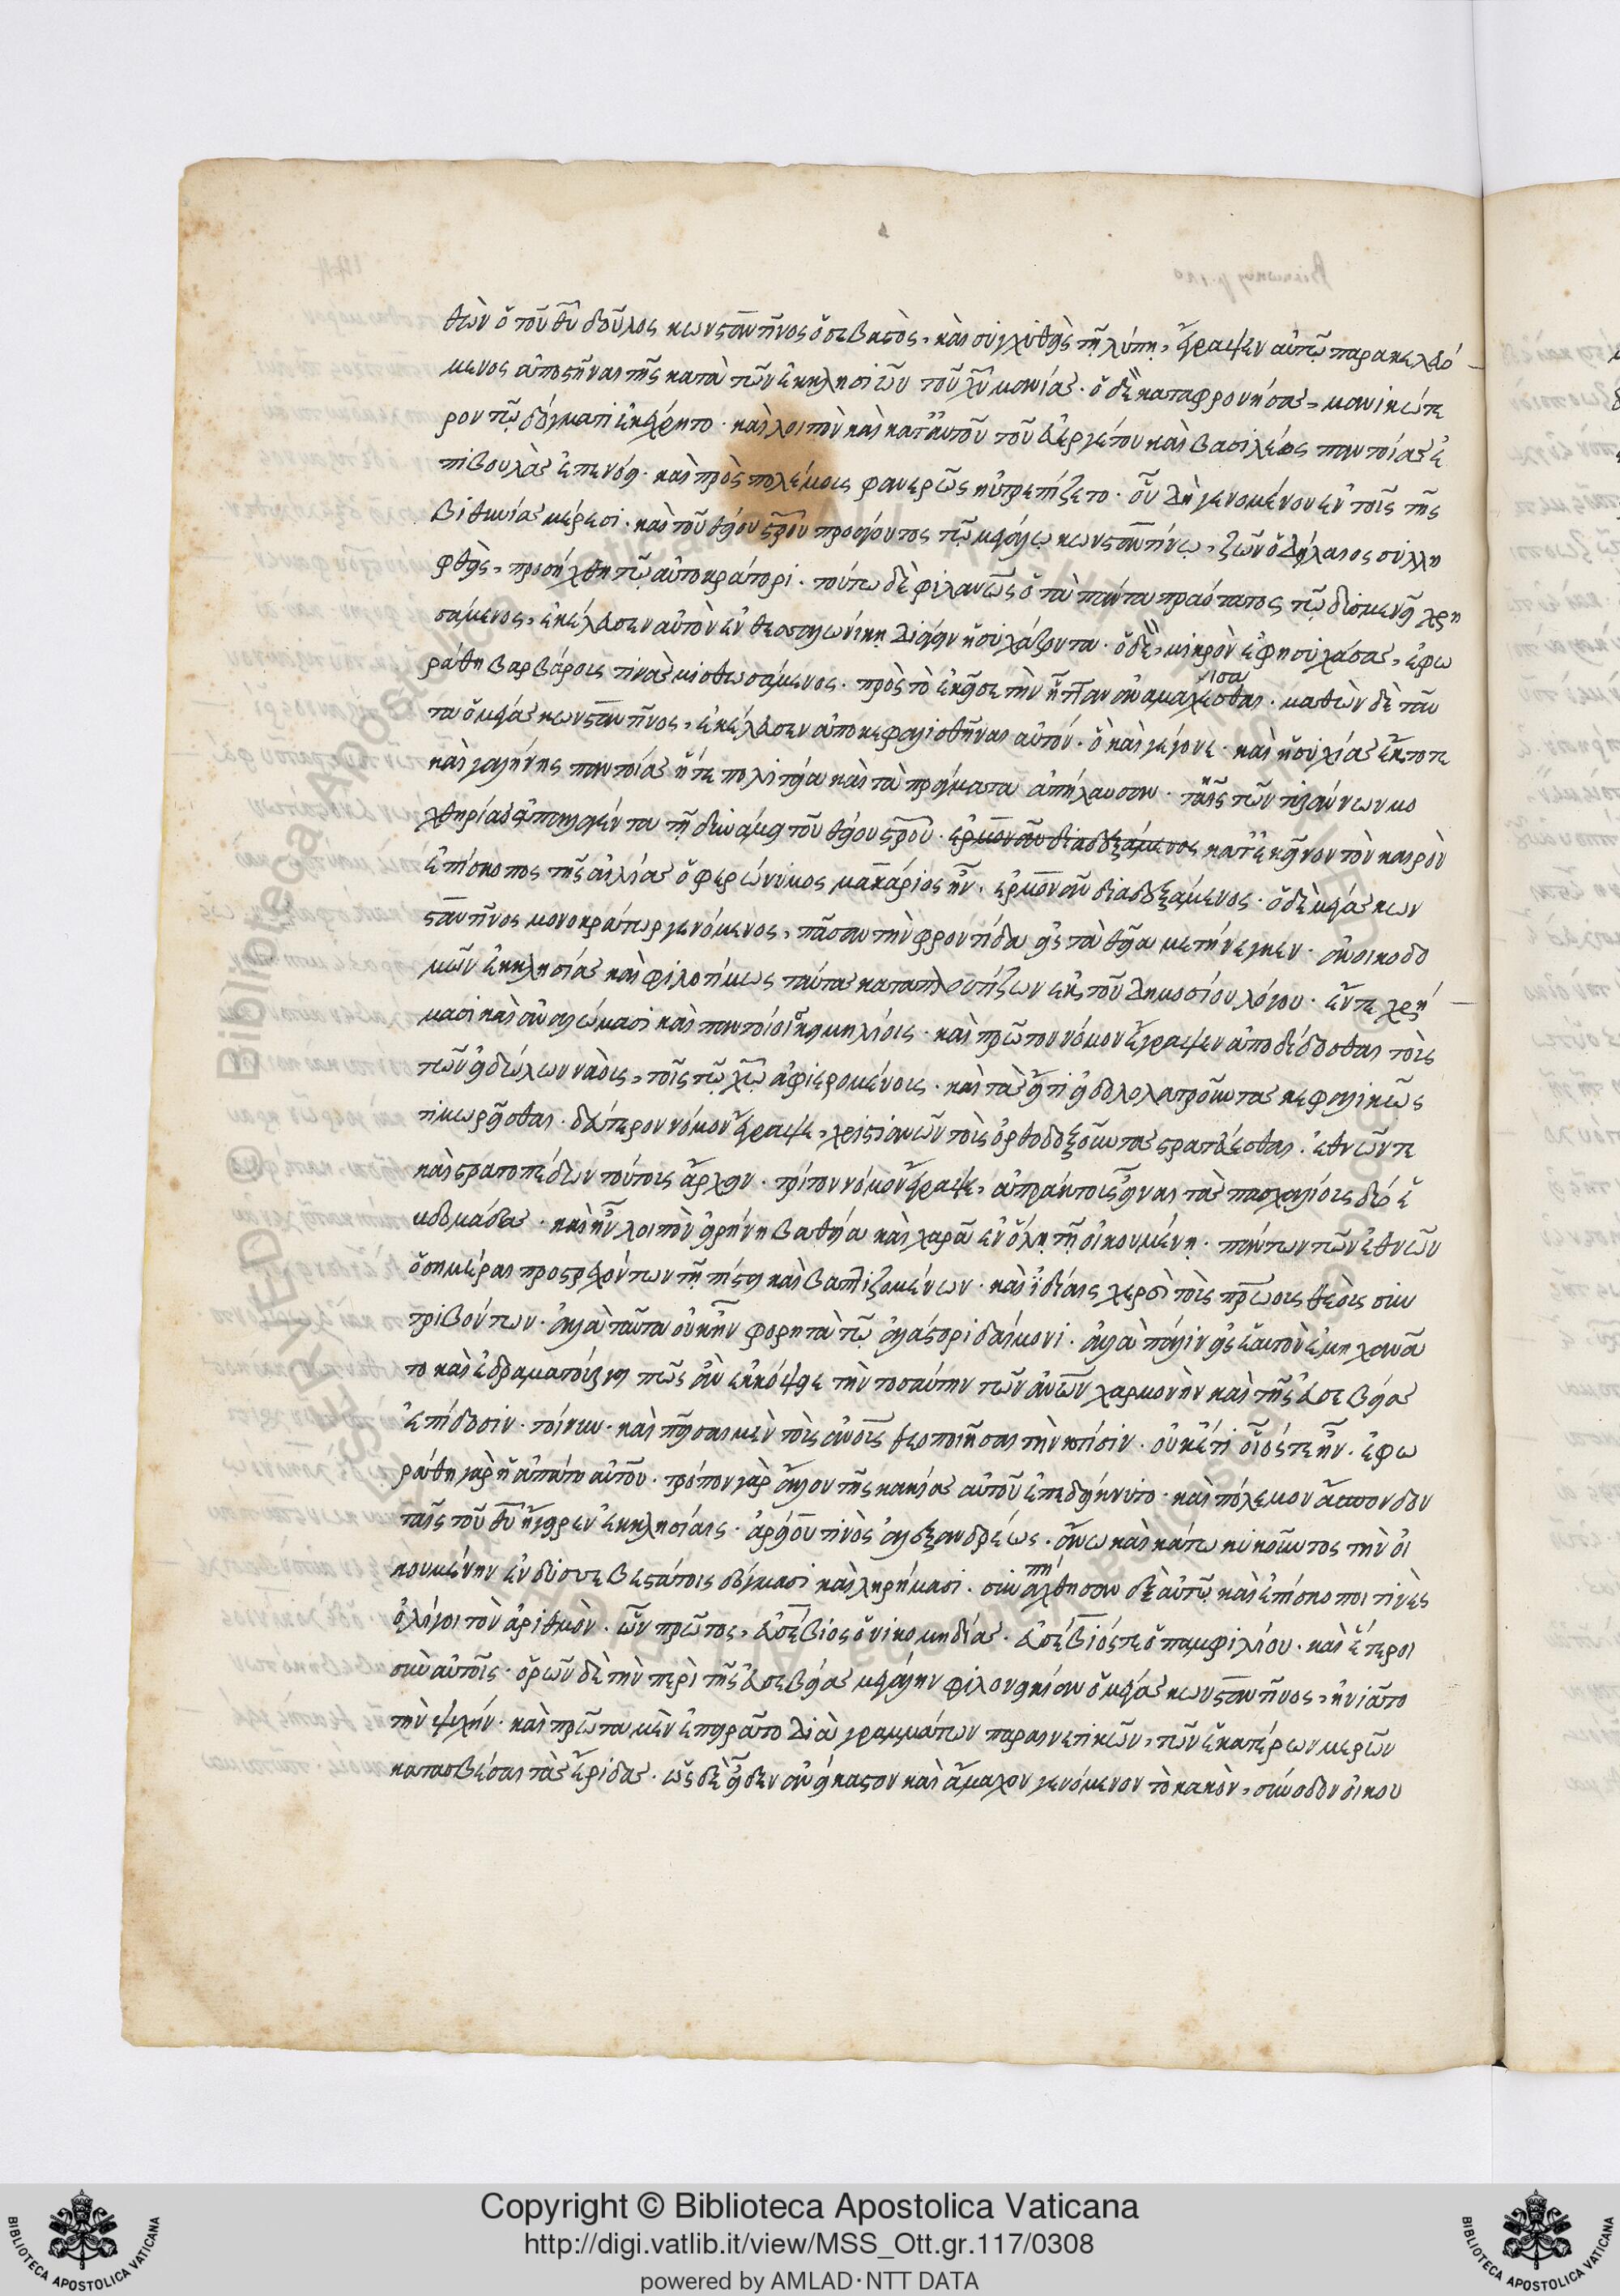 θὼν ὁ τοῦ θῦ δοῦλος κωνσταντῖνος ὁ σεβαστὸς, καὶ συγχυθεὶς τῇ λύπῃ, ἔγραψεν αὐτῷ παρακελευό
μενος ἀποστῆναι τῆς κατὰ τῶν ἐκκλησιῶν τοῦ χῦ μανίας. ὁ δὲ καταφρονήσας, μανικώτε
ρον τῷ δόγματι ἐκέχρητο. καὶ λοιπὸν καὶ κατ' αὐτοῦ τοῦ εὐεργέτου καὶ βασιλέως παντοίας ἐ
πιβουλὰς ἐπενόει. καὶ πρὸς πολέμους φανερῶς ηὐτρεπίζετο. οὗ δὴ γενομένου ἐν τοῖς τῆς
βιθυνίας μέρεσι. καὶ τοῦ θείου σροῦ προάγοντος τῷ μεγάλῳ κωνσταντίνῳ, ζῶν ὁ δείλαιος συλλη
φθεὶς, προσήχθη τῷ αὐτοκράτορι. τούτω δὲ φιλανῶς ὁ τὰ πάντα πραότατος τῷ δυσμενεῖ χρη
σάμενος, ἐκέλευσεν αὐτὸν ἐν θεσσαλωνίκῃ διάγειν ἡσυχάζοντα. ὁ δὲ, μικρὸν ἐφησυχάσας, ἐφω
ράθη βαρβάρους τινὰς μισθωσάμενος. πρὸς τὸ ἐκεῖσε τὴν ἧτταν ἀναμαχέσασθαι. μαθὼν δὲ ταῦ
τα ὁ μέγας κωνσταντῖνος, ἐκέλευσεν ἀποκεφαλισθῆναι αὐτόν. ὃ καὶ γέγονε. καὶ ἡσυχίας ἔκτοτε
καὶ γαλήνης παντοίας ἥτε πολιτεία καὶ τὰ πράγματα ἀπήλαυσαν. ταῖς τῶν τυράννων μο
χθηρίας ἀπαλλαγέντα τῇ δυνάμει τοῦ θείου σροῦ. ἕρμονα διαδεξάμενος κατ' ἐκεῖνον τὸν καιρὸν
ἐπίσκοπος τῆς αἰλίας ὁ φερώνυμος μακάριος ἦν. ἕρμονα διαδεξάμενος. ὁ δὲ μέγας κων
σταντῖνος μονοκράτωρ γενόμενος, πᾶσαν τὴν φροντίδα εἰς τὰ θεῖα μετήνεγκεν. ἀνοικοδο
μῶν ἐκκλησίας καὶ φιλοτίμως ταύτας καταπλουτίζων ἐκ τοῦ δημοσίου λόγου. ἔν τε χρή
μασι καὶ ἀναλώμασι καὶ παντοίοις κειμηλίοις. καὶ πρῶτον νόμον ἔγραψεν ἀποδίδοσθαι τοὺς
τῶν εἰδώλων ναοὺς, τοῖς τῷ χῷ ἀφιερομένοις. καὶ τοὺς ἔτι εἰδολολατροῦντας κεφαλικῶς
τιμωρεῖσθαι. δεύτερον νόμον ἔγραψε, χριστιανῶν τοὺς ὀρθοδοξοῦντας στρατεύεσθαι. ἐθνῶν τε
καὶ στρατοπέδων τούτους ἄρχειν. τρίτον νόμον ἔγραψε, ἀπράκτους εἶναι τὰς πασχαλίους δύο ἑ
βδομάδας. καὶ ἦν λοιπὸν εἰρήνη βαθεῖα καὶ χαρὰ ἐν ὅλῃ τῇ οἰκουμένῃ. πάντων τῶν ἐθνῶν
ὁσημέραι προστρεχόντων τῇ πίστει καὶ βαπτιζομένων. καὶ ἰδίαις χερσὶ τοὺς πρώους θεοὺς συν
τριβόντων. ἀλλὰ ταῦτα οὐκ ἦν φορητὰ τῷ ἀλάστορι δαίμονι. ἀλλὰ πάλιν εἰς ἑαυτὸν ἐμηχανᾶ
το καὶ ἐδραματούργει πῶς ἂν ἐκκόψειε τὴν τοσαύτην τῶν ἀνῶν χαρμονὴν καὶ τῆς εὐσεβείας
ἐπίδοσιν. τοίνυν. καὶ πεῖσαι μὲν τοὺς ἀνοὺς θεοποιῆσαι τὴν κτίσιν. οὐκέτι οἷός τε ἦν. ἐφω
ράθη γὰρ ἡ ἀπάτη αὐτοῦ. τρόπον γὰρ ἄλλον τῆς κακίας αὐτοῦ ἐπεδείκνυτο. καὶ πόλεμον ἄσπονδον
ταῖς τοῦ θῦ ἤγειρεν ἐκκλησίαις. ἀρείου τινὸς ἀλεξανδρέως. ἄνω καὶ κάτω κυκοῦντος τὴν οἰ
κουμένην ἐν δυσσεβεστάτοις δόγμασι καὶ ληρήμασι. συναπήχθησαν δὲ αὐτῷ καὶ ἐπίσκοποι τινὲς
ὀλίγοι τὸν ἀριθμὸν. ὧν πρῶτος, εὐσέβιος ὁ νικομηδίας. εὐσέβιός τε ὁ παμφιλίου. καὶ ἕτεροι
σὺν αὐτοῖς. ὁρῶν δὲ τὴν περὶ τῆς εὐσεβείας μεγάλην φιλονεικίαν ὁ μέγας κωνσταντῖνος, ἠνιᾶτο
τὴν ψυχήν. καὶ πρῶτα μὲν ἐπειρᾶτο διὰ γραμμάτων παραινετικῶν, τῶν ἑκατέρων μερῶν
κατασβέσαι τὰς ἔριδας. ὡς δὲ εἶδεν ἀνείκαστον καὶ ἄμαχον γενόμενον τὸ κακὸν, σύνοδον οἰκου
Copyright © Biblioteca Apostolica Vaticana
http://digi.vatlib.it/view/MSS_Ott.gr.117/0308
powered by AMLAD·NTT DATA
BIBLIOTECA APOSTOLICA VATICANA
BIBLIOTECA APOSTOLICA VATICANA